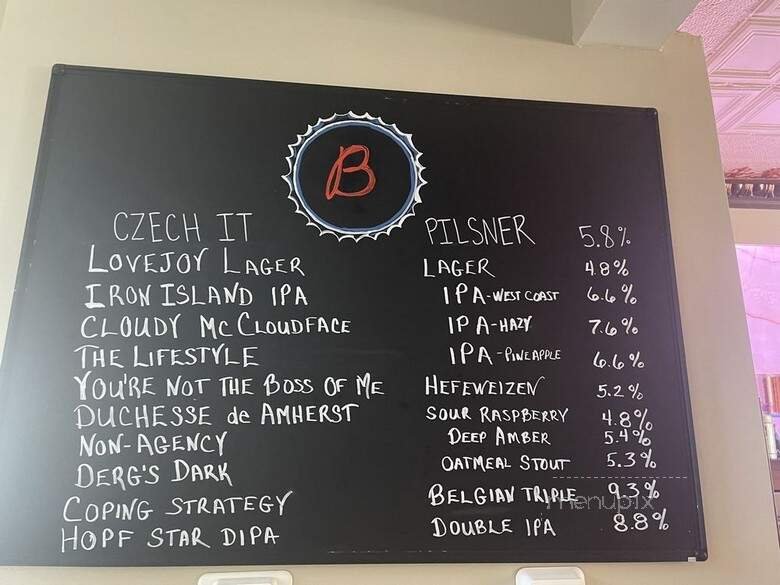 B
CZECH IT PILSNER 5.8%
LOVEJOY LAGER LAGER 4.8%
IRON ISLAND IPA IPA-WEST COAST 6.6%
CLOUDY McCLOUDFACE IPA-HAZY 7.6%
THE LIFESTYLE IPA-PINEAPPLE 6.6%
YOU'RE NOT THE BOSS OF ME HEFEWEIZEN 5.2%
DUCHESSE de AMHERST SOUR RASPBERRY 4.8%
NON-AGENCY DEEP AMBER 5.4%
DERG'S DARK OATMEAL STOUT 5.3%
COPING STRATEGY BELGIAN TRIPLE 9.3%
menupix
HOPF STAR DIPA DOUBLE IPA 8.8%